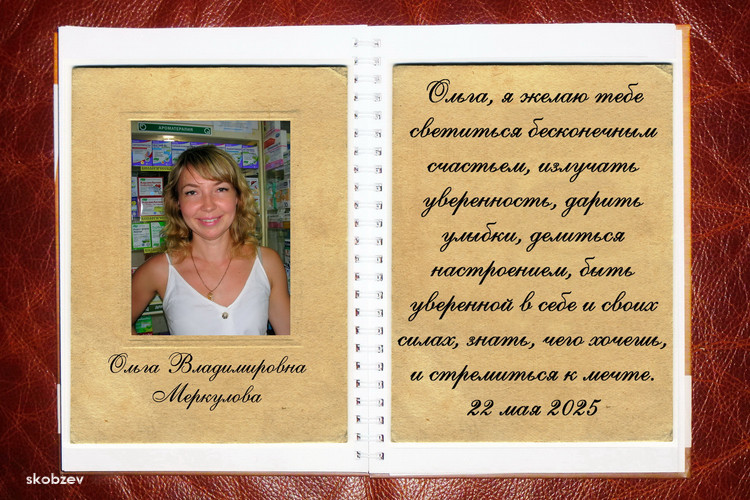 АРОМАТЕРАПИЯ
Ольга Владимировна
Меркулова
Ольга, я желаю тебе
светиться бесконечным
счастьем, излучать
уверенность, дарить
улыбки, делиться
настроением, быть
уверенной в себе и своих
силах, знать, чего хочешь,
и стремиться к мечте.
22 мая 2025
skobzev